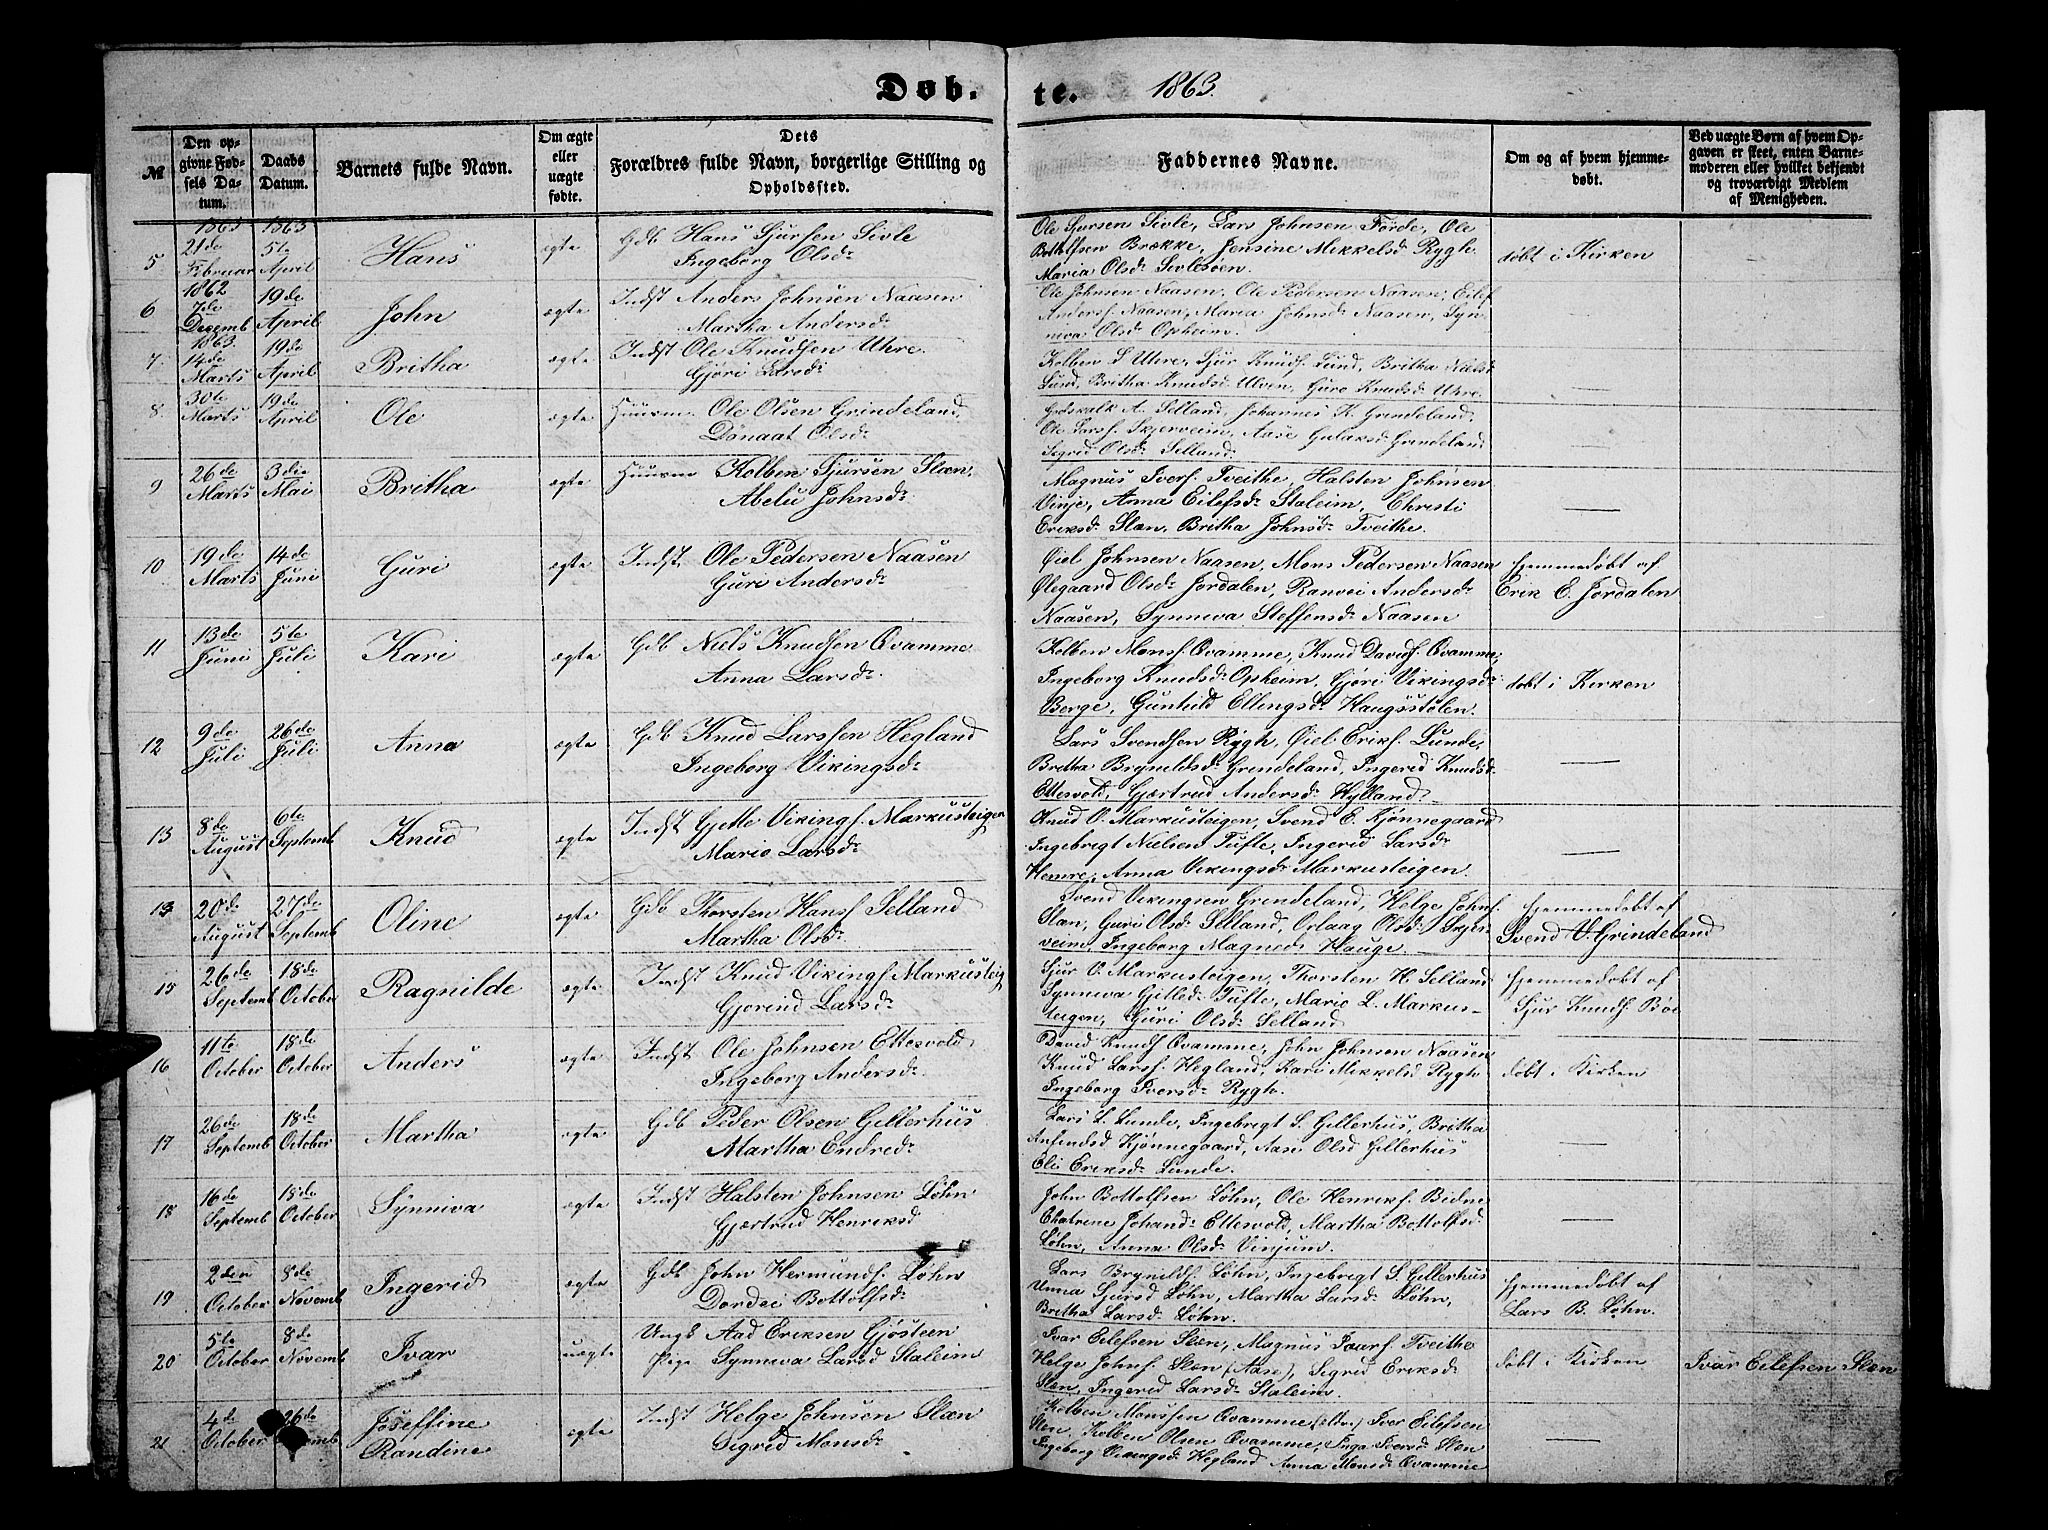 Døb.
te. 1863.
№
Den op-
givne Fød-
sels Da-
tum.
Daabs
Datum.
Barnets fulde Navn.
Om ægte
eller
uægte
fødte.
Dets
Forældres fulde Navn, borgerlige Stilling og
Opholdssted.
Faddernes Navne.
Om og af hvem hjemme-
døbt.
Ved uægte Børn af hvem Op-
gaven er skeet, enten Barne-
moderen eller hvilket bekjendt
og troværdigt Medlem
af Menigheden.
5
1863
21de
Februar
1863
5te
April
Hans
ægte
Gdb Hans Sjursen Sivle
Ingeborg Olsdr
Ole Sjursen Sivle, Lars Johnsen Førde, Ole
Bottolfsen Brække, Jensine Mikkelsd Rygh
Maria Olsdr Sivlesøen.
døbt i Kirken
6
1862
7de
Decemb
19de
April
John
ægte
Indst Anders Johnsen Naasen
Martha Andersdr
Ole Johnsen Naasen, Ole Pedersen Naasen, Eilef
Andersf Naasen, Maria Johnsdr Naasen, Syn-
niva Olsdr Opheim.
7
1863.
14de
Marts
19de
April
Britha
ægte
Indst Ole Knudsen Uhre.
Gjøri Larsdr
Kolben S Uhre, Sjur Knudf. Lund, Britha Nielsd
Lund, Britha Knudsd Ulven, Guro Knudsd Uhre.
8
30te
Marts
19de
April
Ole
ægte
Huusm Ole Olsen Grindeland
Dønaat Olsdr
Godskalk A. Selland, Johannes K. Grindeland
Ole Larsf. Skjerveim, Aase Gulaksd Grindeland
Sigrid Olsdr Selland.
9
26de
Marts
3die
Mai
Britha
ægte
Huusm Kolben Sjursen Slæn
Abelu Johnsdr
Magnus Iversf. Tveithe, Halsten Johnsen
Vinje, Anna Eilefsdr Staleim, Christi
Eriksd. Slæn, Britha Johnsdr Tveithe.
10
19de
Marts
14de
Juni
Guri
ægte
Indst. Ole Pedersen Naasen
Guri Andersdr
Øiel Johnsen Naasen, Mons Pedersen Naasen
Ølegaard Olsdr Jordalen, Ranvei Andersdr
Naasen, Synneva Steffensdr Naasen
hjemmedøbt af
Erik E. Jordalen
11
13de
Juni
5te
Juli
Kari
ægte
Gdb Niels Knudsen Qvamme
Anna Larsdr
Kolben Monsf. Qvamme, Knud Davidf. Qvamme,
Ingeborg Knudsdr Opheim, Gjøri Vikingsdr
Berge, Gunhild Ellingsdr Haugsstølen.
døbt i Kirken
12
9de
Juli
26de
Juli
Anna
ægte
Gdb Knud Larssen Hegland
Ingeborg Vikingsdr
Lars Svendsen Rygh, Øiel Eriksf. Lunde,
Britha Brynildsdr Grindeland, Ingerid Knudsd
Ettesvold, Gjærtrud Andersdr Hylland
13
8de
August
6te
Septemb
Knud
ægte
Indst Gjette Vikingf. Markusteigen
Mario Larsdr
Knud O. Markusteigen, Svend E. Kjønnegaard
Ingebrigt Nielsen Tufte, Ingerid Larsdr
Hemre, Anna Vikingsdr Markusteigen.
13
20de
August
27de
Septemb
Oline
ægte
Gdb Thorsten Hansf Selland
Martha Olsdr
Svend Vikingsen Grindeland, Helge Johnf.
Slæn, Guri Olsdr Selland, Orlaag Olsdr Skjer-
veim, Ingeborg Magneds Hauge.
hjemmedøbt af
Svend V. Grindeland
15
26de
Septemb
18de
October
Ragnilde
ægte
Indst Knud Vikingf. Markusteig
Gjorind Larsdr
Sjur O. Markusteigen, Thorsten H. Selland
Synneva Gitledr Tufte, Mario L. Markus-
teigen, Guri Olsdr Selland
hjemmedøbt af
Sjur Knudf. Bøe
16
11te
October
18de
October
Anders
ægte
Indst Ole Johnsen Ettesvold
Ingeborg Andersdr
David Knudf Qvamme, John Johnsen Naasen
Knud Larsf. Hegland, Kari Mikkelsd Rygh
Ingeborg Iversdr Rygh.
døbt i Kirken
17
26de
Septemb
18de
October
Martha
ægte
Gdb Peder Olsen Gillerhus
Martha Endredr
Lars L Lunde, Ingebrigt S. Gillerhus, Britha
Anfindsd Kjønnegaard, Aase Olsd Gillerhus
Eli Eriksdr Lunde.
18
16de
Septemb
18de
October
Synniva
ægte
Indst Halsten Johnsen Løhn
Gjærtrud Henriksd
John Bottolfsen Løhn, Ole Henriksf. Bidne
Chatrine Johandr Ettesvold, Martha Bottolfsd
Løhn, Anna Olsdr Vinjum.
19
2den
October
8de
Novemb
Ingerid
ægte
Gdb John Hermundf. Løhn
Dordei Bottolfsdr
Lars Brynildf. Løhn, Ingebrigt S. Gillerhus
Unna Sjursd Løhn, Martha Larsdr Løhn,
Britha Larsdr Løhn.
hjemmedøbt af
Lars B. Løhn.
20
5te
October
8de
Novemb
Ivar
uægte
Ungk Aad Eriksen Gjøsteen
Pige Synneva Larsd Staleim
Ivar Eilefsen Slæn, Magnus Ivarf. Tveithe
Helge Johnf. Slæn (Aase), Sigrid Eriksdr
Slæn, Ingerid Larsdr Staleim.
døbt i Kirken
Ivar Eilefsen Slæn
21
4de
October
26de
Joseffine
Randine
ægte
Indst Helge Johnsen Slæn
Sigrid Monsdr
Kolben Monssen Qvamme, Ivar Eilefsen
Slæn, Kolben Olsen Qvamme, Inga Iversdr Slæn
Ingeborg Vikingsdr Hegland Anna Monsdr Qvamme